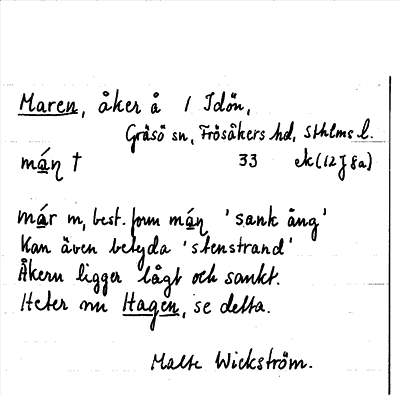 Maren, åker å 1 Idön,
Gräsö sn, Frösåkers hd, Sthlms l.
mán † 33 ek (12 J 8a)
már m, best. form mán 'sank äng'
Kan även betyda 'stenstrand'
Åkern ligger lågt och sankt.
Heter nu Hagen, se detta.
Malte Wickström.